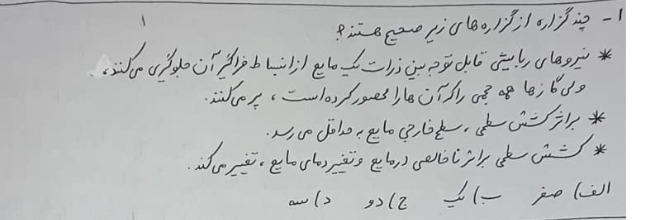 ۱- چند گزاره از گزاره های زیر صحیح هستند؟ ۱
* نیروهای ربایشی قابل توجه بین ذرات یک مایع از انبساط فراگیر آن جلوگیری می کنند،
ولی گازها همه حجمی را که آن ها را محصور کرده است، پر می کنند.
* براثر کشش سطحی، سطح خارجی مایع به حداقل می رسد.
* کشش سطحی براثر ناخالصی در مایع و تغییر دمای مایع، تغییر می کند.
الف) صفر ب) یک ج) دو د) سه